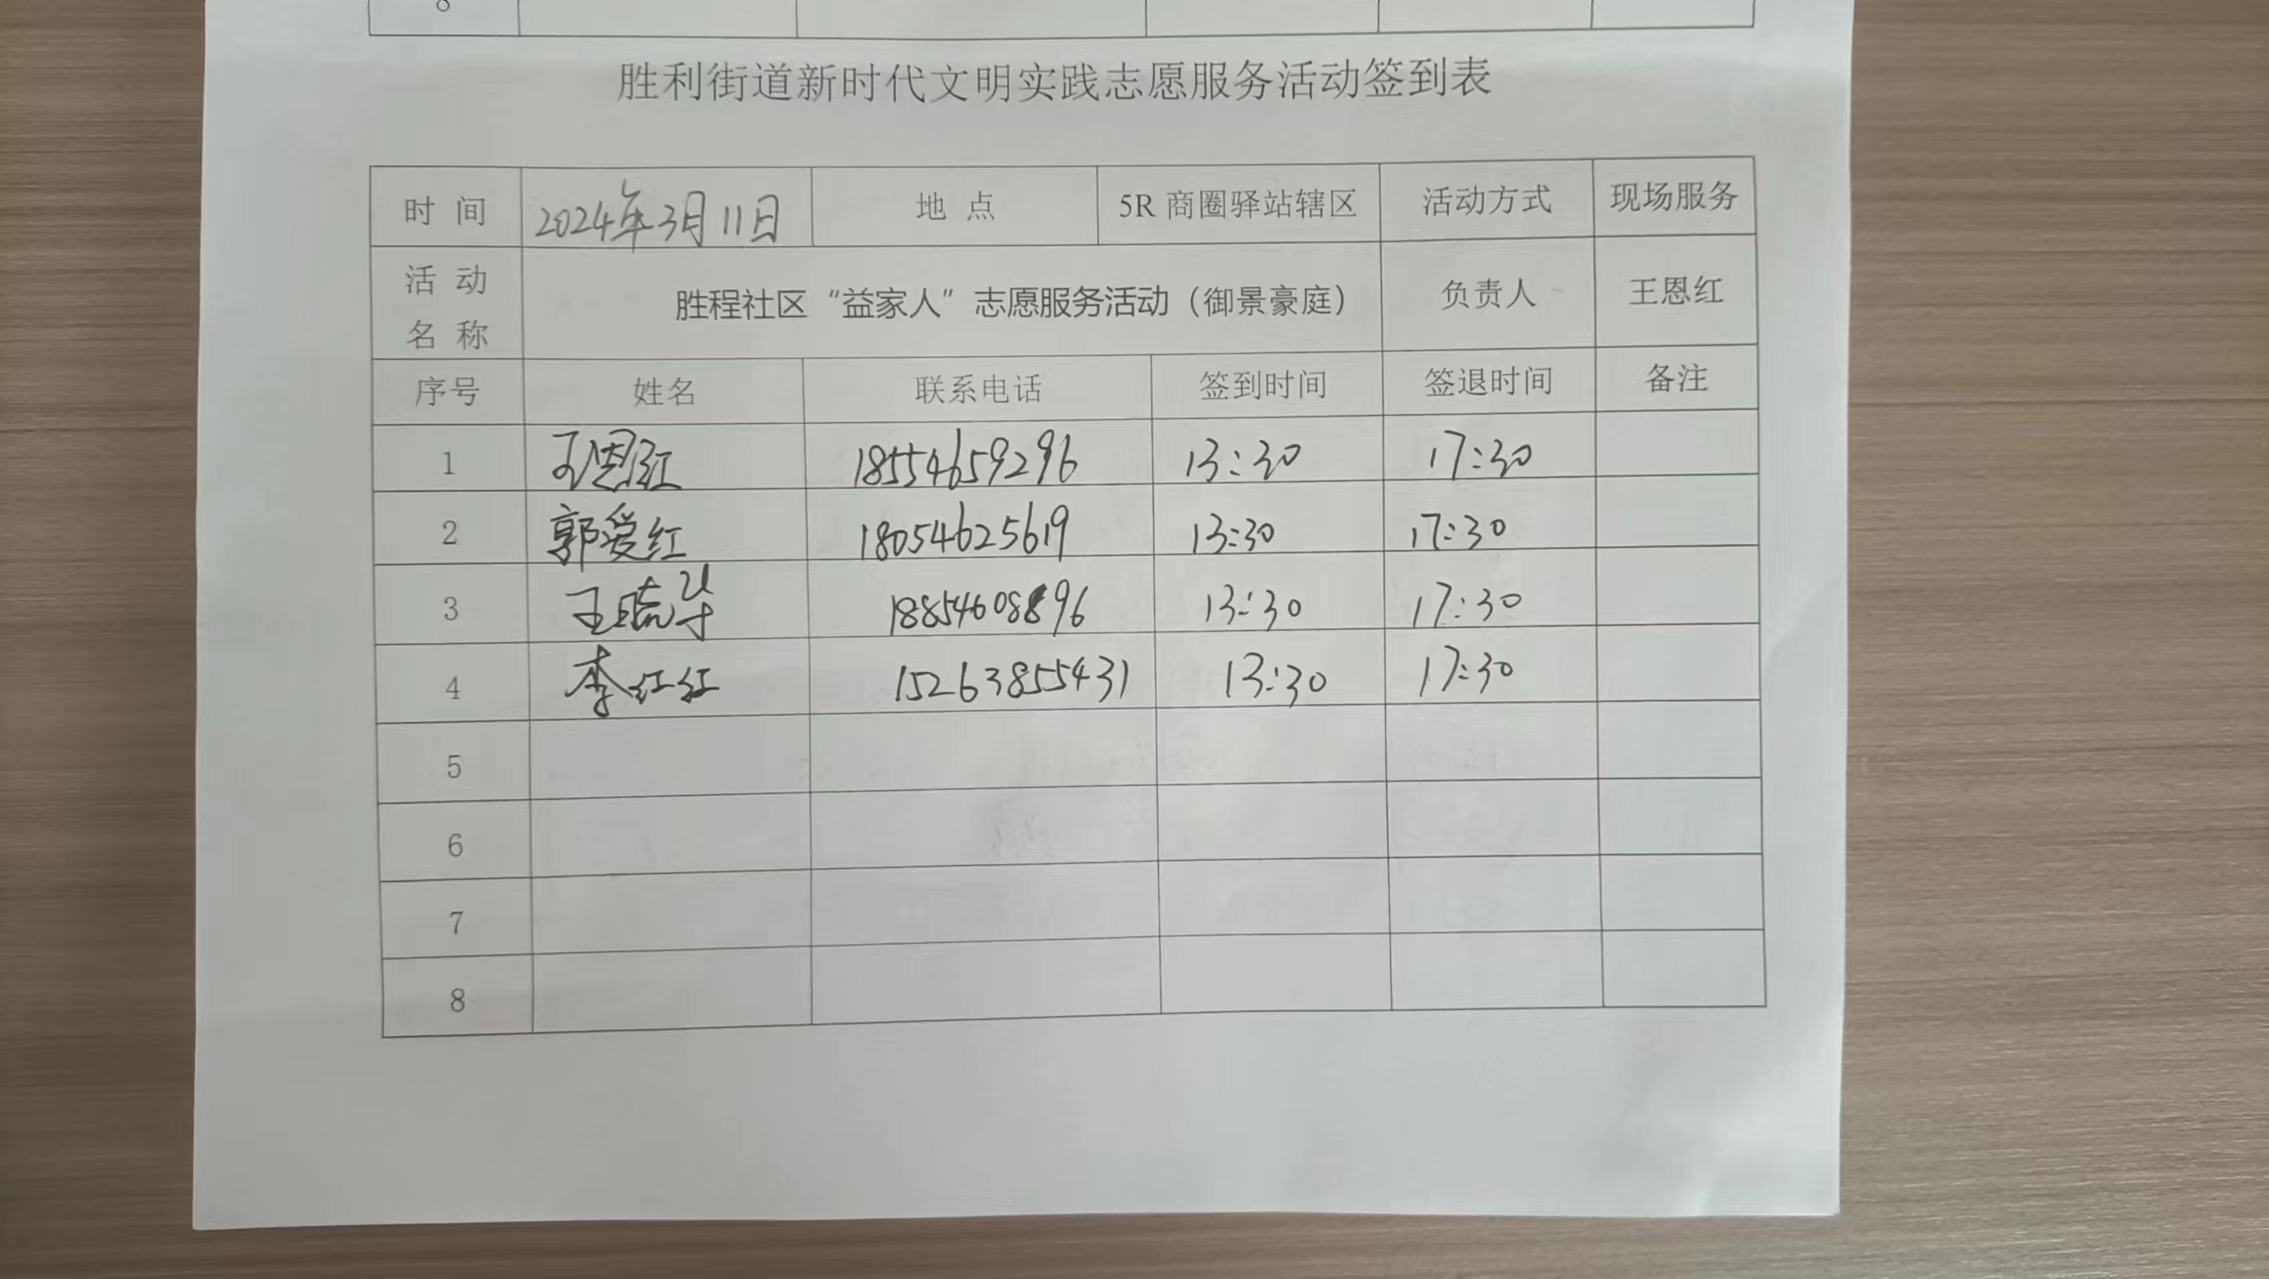 8
胜利街道新时代文明实践志愿服务活动签到表
时 间 2024年3月11日 地 点 5R 商圈驿站辖区 活动方式 现场服务
活 动
名 称 胜程社区“益家人”志愿服务活动（御景豪庭） 负责人 王恩红
序号 姓名 联系电话 签到时间 签退时间 备注
1 王恩红 18554659296 13:30 17:30
2 郭爱红 18054625619 13:30 17:30
3 18854608896 13:30 17:30
4 李红红 15263855431 13:30 17:30
5
6
7
8